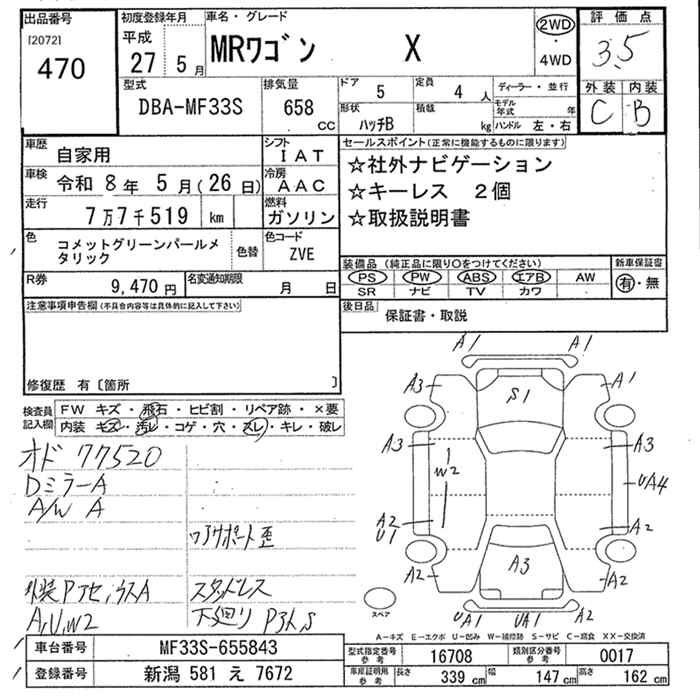 出品番号
[2072]
470
初度登録年月
平成
27 5月
車名・グレード
MRワゴン X
2WD
・
4WD
評価点
3.5
外装 内装
C B
型式
DBA-MF33S
排気量
658
CC
ドア
5
定員
4 人
形状
ハッチB
積載
kg
ディーラー・並行
モデル年式 年
ハンドル 左・右
車歴
自家用
シフト
IAT
車検
令和 8年 5月(26日)
冷房
AAC
走行
7万7千519 km
燃料
ガソリン
色
コメットグリーンパールメタリック
色替
色コード
ZVE
R券
9,470円
名変通知期限
月 日
セールスポイント(正常に機能するものに限ります)
☆社外ナビゲーション
☆キーレス 2個
☆取扱説明書
装備品 (純正品に限り○をつけてください)
新車保証書
PS PW ABS エアB AW
有・無
SR ナビ TV カワ
後日品
保証書・取説
注意事項申告欄(不具合内容等は具体的に記入して下さい)
修復歴 有〔箇所 〕
検査員記入欄
FW キズ・飛石・ヒビ割・リペア跡・×要
内装 キズ・汚レ・コゲ・穴・スレ・キレ・破レ
オド 77520
Dミラー A
A/W A
コアサポート歪
外装 Pアセ、ウスA
スタッドレス
A,U,W2
下廻り PネS
A1 A1
A3 S1 A1
A3 A3
W2
UA4
A2 A2
U1
A3
A2 A2
スペア
UA1 UA1 A2
A−キズ E−エクボ U−凹み W−補修跡 S−サビ C−腐食 XX−交換済
車台番号
MF33S-655843
登録番号
新潟 581 え 7672
型式指定番号
参考
16708
類別区分番号
参考
0017
車庫証明用
参考
長さ 339 cm 幅 147 cm 高さ 162 cm